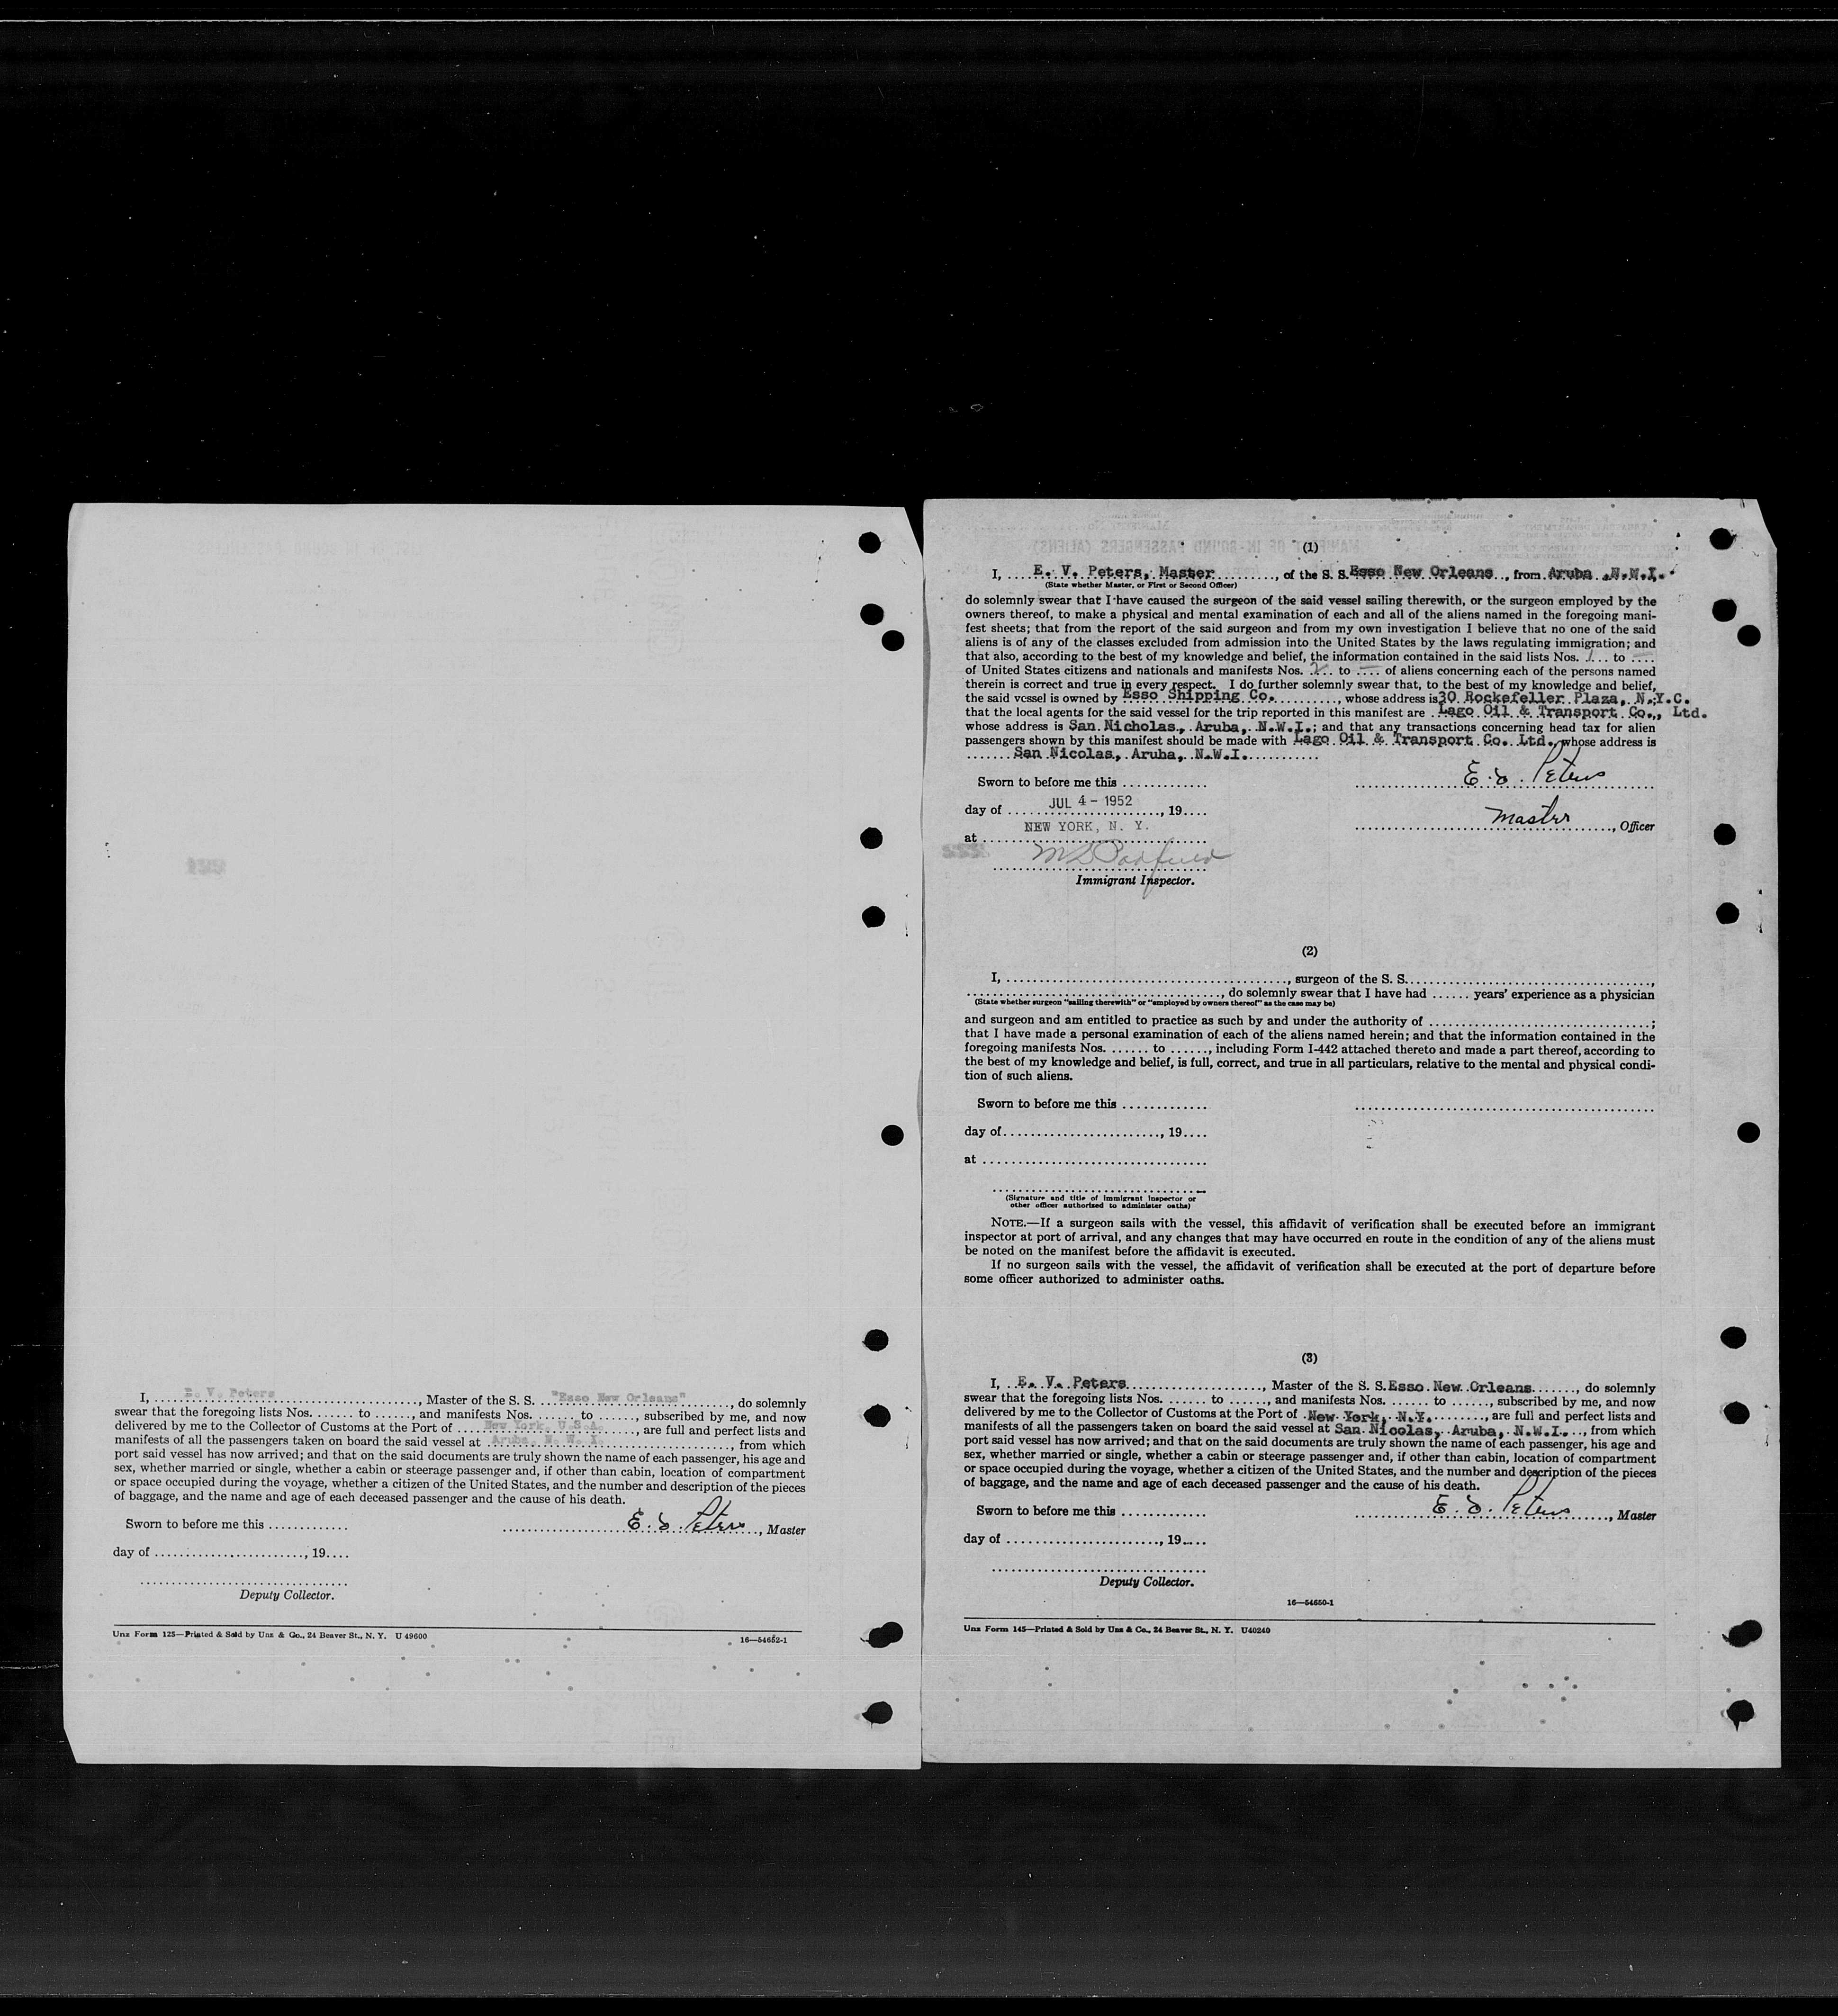 I, E. V. Peters, Master of the S. S. "Esso New Orleans", do solemnly
swear that the foregoing lists Nos. ...... to ......, and manifests Nos. ...... to ......, subscribed by me, and now
delivered by me to the Collector of Customs at the Port of New York, U.S.A., are full and perfect lists and
manifests of all the passengers taken on board the said vessel at Aruba, N. W. I., from which
port said vessel has now arrived; and that on the said documents are truly shown the name of each passenger, his age and
sex, whether married or single, whether a cabin or steerage passenger and, if other than cabin, location of compartment
or space occupied during the voyage, whether a citizen of the United States, and the number and description of the pieces
of baggage, and the name and age of each deceased passenger and the cause of his death.
Sworn to before me this ............. E. V. Peters, Master
day of ......................., 19....
Deputy Collector.
Unz Form 125—Printed & Sold by Unz & Co., 24 Beaver St., N. Y. U 49600
16—54652-1
(1)
I, E. V. Peters, Master, of the S. S. Esso New Orleans, from Aruba, N.W.I.
(State whether Master, or First or Second Officer)
do solemnly swear that I have caused the surgeon of the said vessel sailing therewith, or the surgeon employed by the
owners thereof, to make a physical and mental examination of each and all of the aliens named in the foregoing mani-
fest sheets; that from the report of the said surgeon and from my own investigation I believe that no one of the said
aliens is of any of the classes excluded from admission into the United States by the laws regulating immigration; and
that also, according to the best of my knowledge and belief, the information contained in the said lists Nos. 1 to —
of United States citizens and nationals and manifests Nos. 2 to — of aliens concerning each of the persons named
therein is correct and true in every respect. I do further solemnly swear that, to the best of my knowledge and belief,
the said vessel is owned by Esso Shipping Co., whose address is 30 Rockefeller Plaza, N.Y.C.
that the local agents for the said vessel for the trip reported in this manifest are Lago Oil & Transport Co., Ltd.
whose address is San Nicholas, Aruba, N.W.I.; and that any transactions concerning head tax for alien
passengers shown by this manifest should be made with Lago Oil & Transport Co. Ltd., whose address is
San Nicolas, Aruba, N.W.I.
Sworn to before me this ............. E. V. Peters
day of JUL 4 - 1952, 19.... Master, Officer
at NEW YORK, N. Y.
Immigrant Inspector.
(2)
I, ......................................., surgeon of the S. S. ..................................,
..................................., do solemnly swear that I have had ...... years' experience as a physician
(State whether surgeon "sailing therewith" or "employed by owners thereof" as the case may be)
and surgeon and am entitled to practice as such by and under the authority of ................................;
that I have made a personal examination of each of the aliens named herein; and that the information contained in the
foregoing manifests Nos. ...... to ......, including Form I-442 attached thereto and made a part thereof, according to
the best of my knowledge and belief, is full, correct, and true in all particulars, relative to the mental and physical condi-
tion of such aliens.
Sworn to before me this .............
day of ......................., 19....
at .................................
(Signature and title of Immigrant Inspector or
other officer authorized to administer oaths)
NOTE.—If a surgeon sails with the vessel, this affidavit of verification shall be executed before an immigrant
inspector at port of arrival, and any changes that may have occurred en route in the condition of any of the aliens must
be noted on the manifest before the affidavit is executed.
If no surgeon sails with the vessel, the affidavit of verification shall be executed at the port of departure before
some officer authorized to administer oaths.
(3)
I, E. V. Peters, Master of the S. S. Esso New Orleans, do solemnly
swear that the foregoing lists Nos. ...... to ......, and manifests Nos. ...... to ......, subscribed by me, and now
delivered by me to the Collector of Customs at the Port of New York, N.Y., are full and perfect lists and
manifests of all the passengers taken on board the said vessel at San Nicolas, Aruba, N.W.I., from which
port said vessel has now arrived; and that on the said documents are truly shown the name of each passenger, his age and
sex, whether married or single, whether a cabin or steerage passenger and, if other than cabin, location of compartment
or space occupied during the voyage, whether a citizen of the United States, and the number and description of the pieces
of baggage, and the name and age of each deceased passenger and the cause of his death.
Sworn to before me this ............. E. V. Peters, Master
day of ......................., 19....
Deputy Collector.
16—54650-1
Unz Form 145—Printed & Sold by Unz & Co., 24 Beaver St., N. Y. U40240